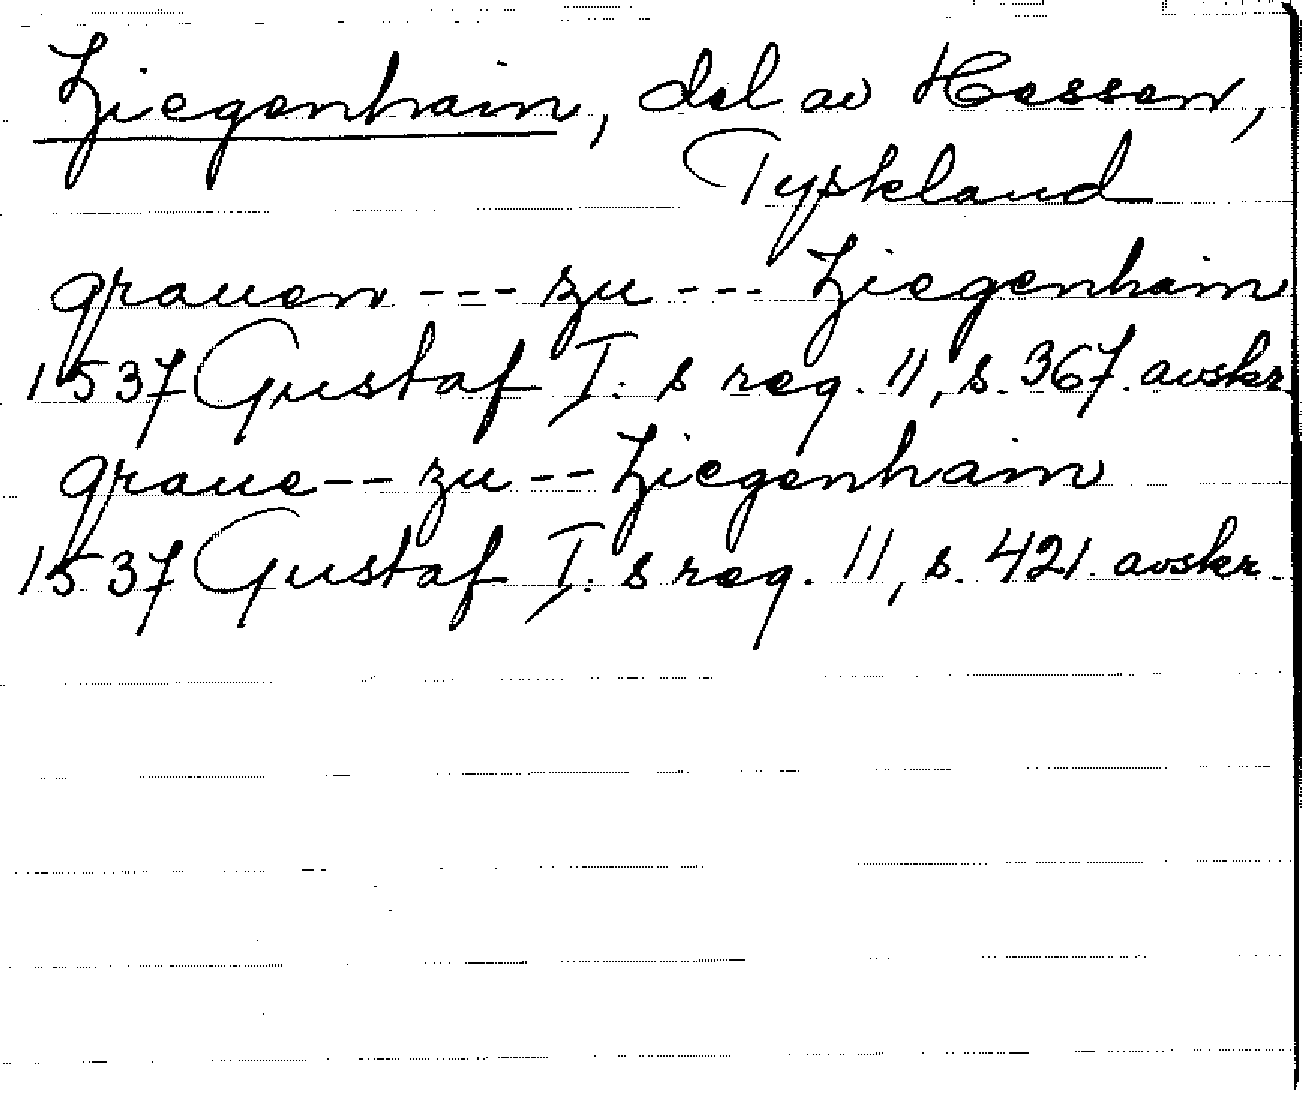 Ziegenhain, del av Hessen,
Tyskland
grauen --- zu --- Ziegenhain
1537 Gustaf I:s reg. 11, s. 367. avskr.
graue -- zu -- Ziegenhain
1537 Gustaf I:s reg. 11, s. 421. avskr.